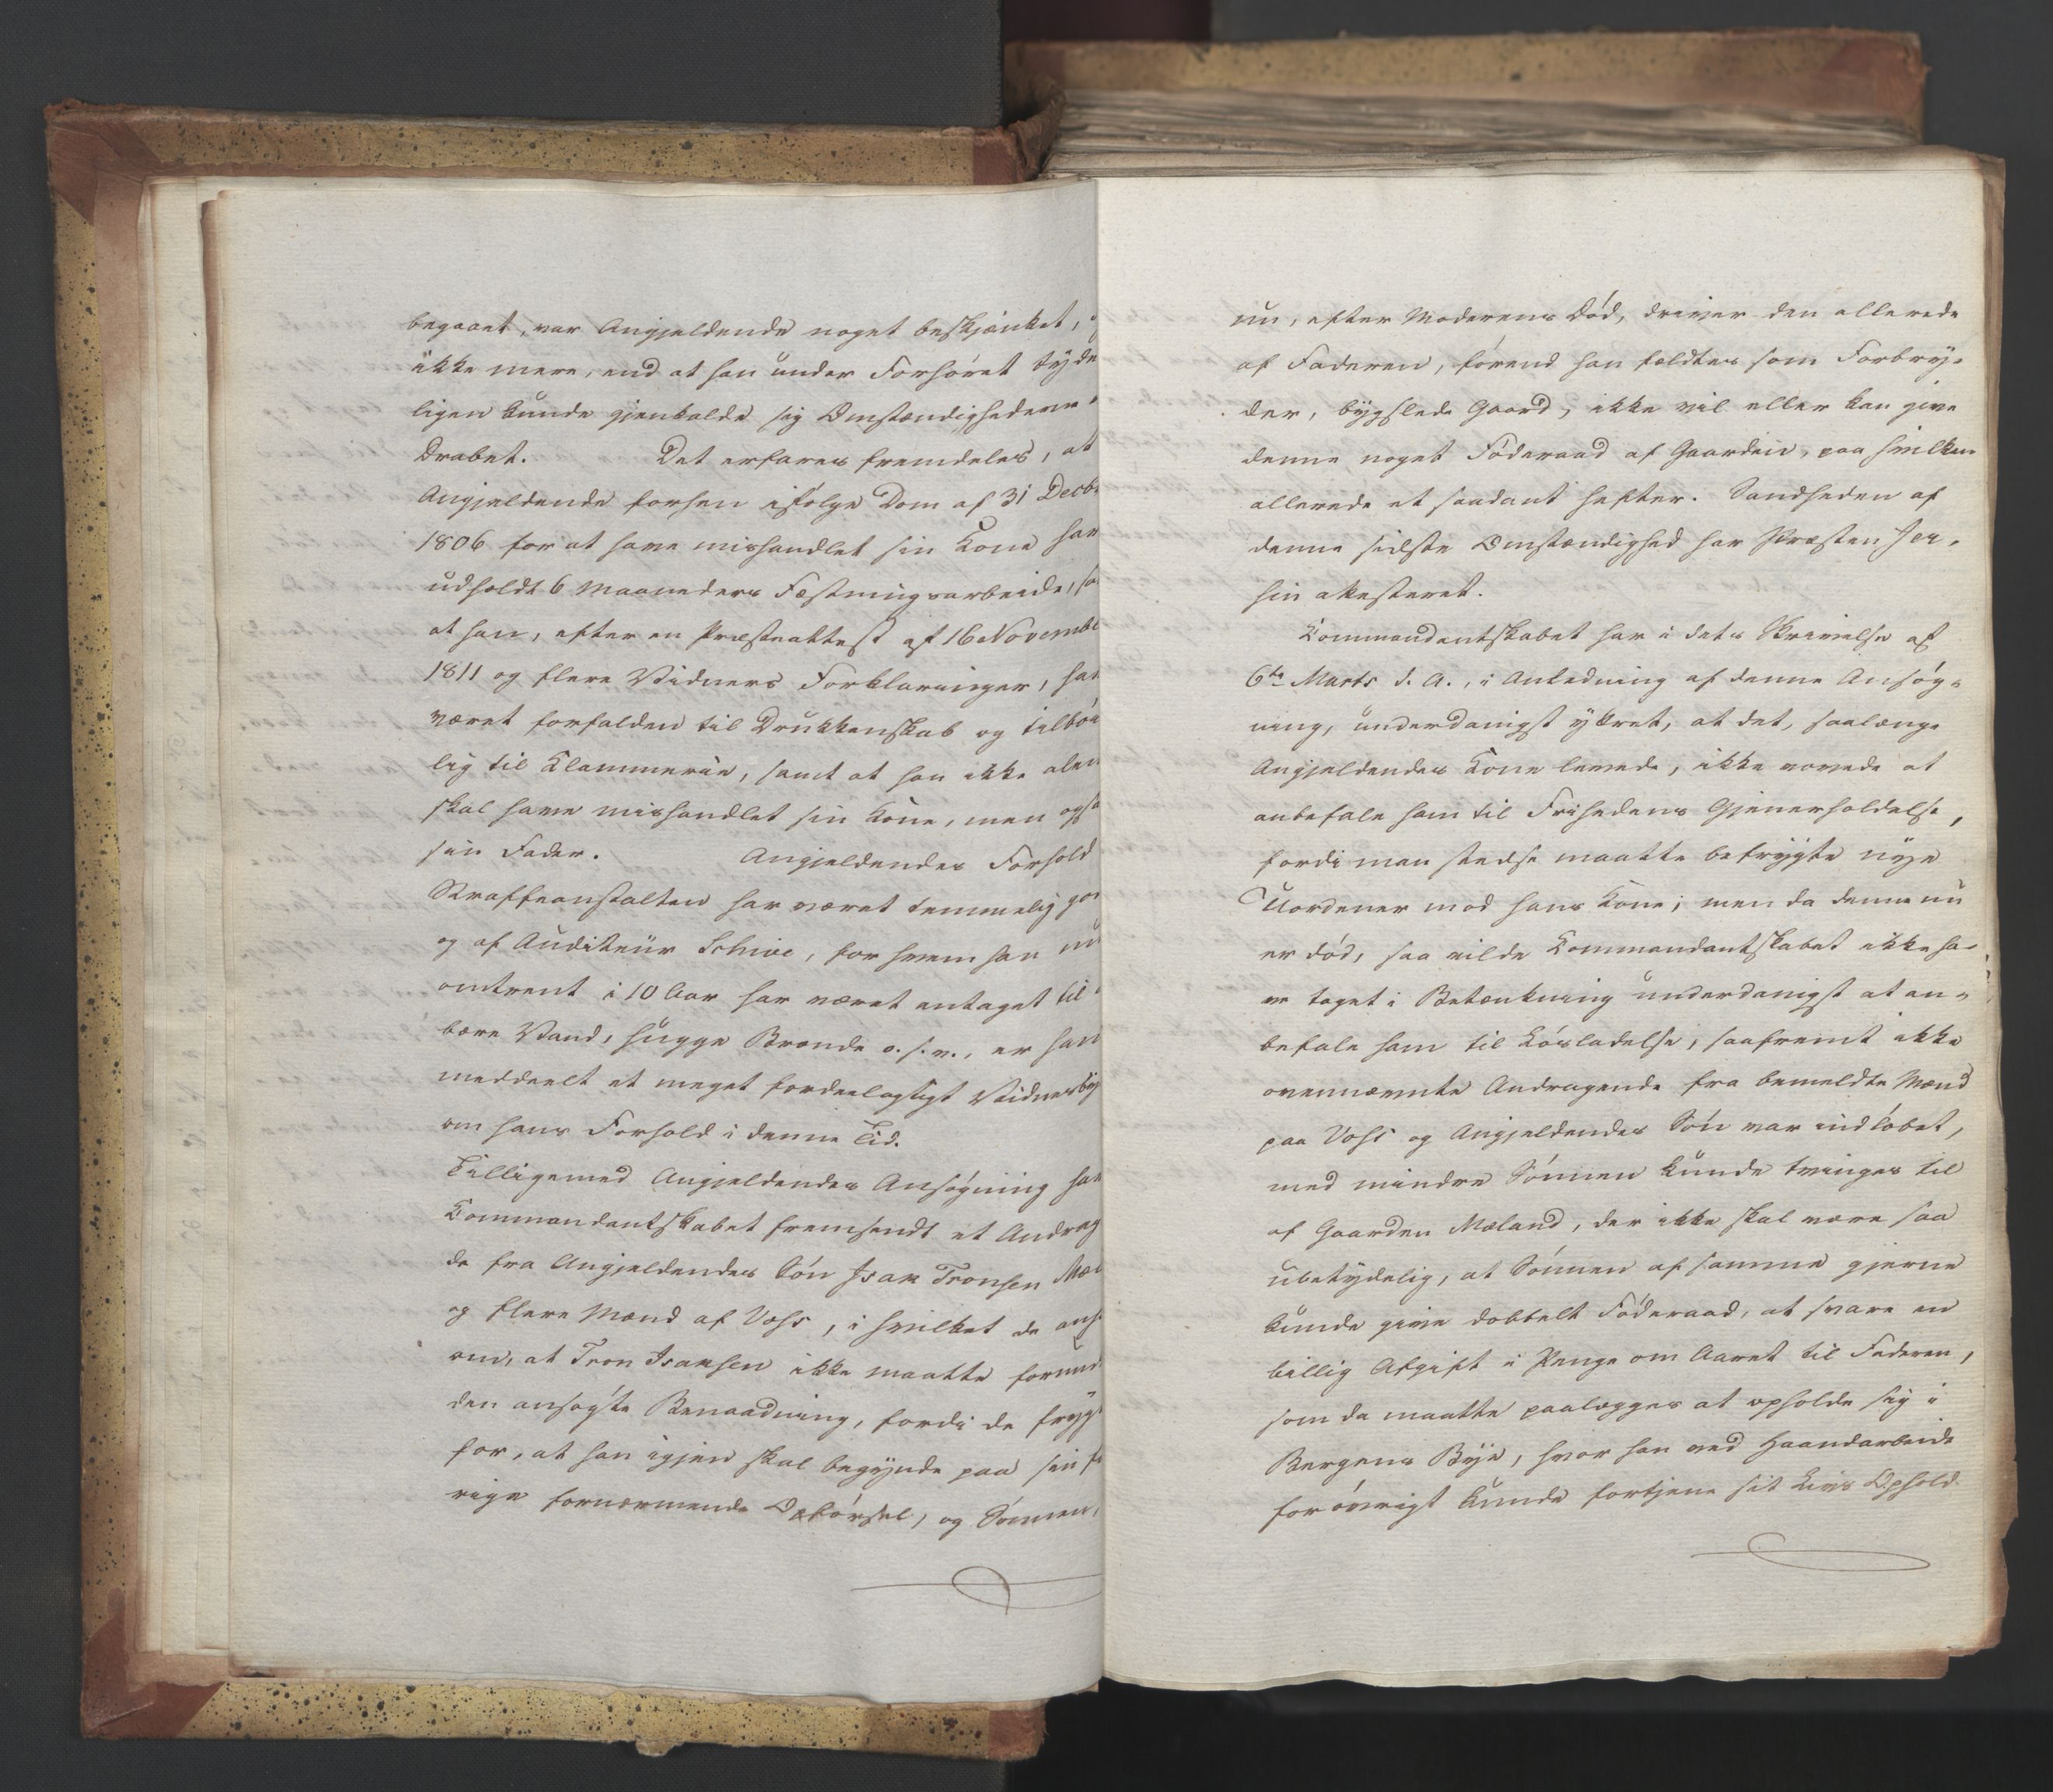 begaaet, var Angjeldende noget beskjænket,
ikke mere, end at han under Forhöret tyde
ligen kunde gjenkalde sig Omstændighederne
Drabet. Det erfares fremdeles, at
Angjeldende forhen ifölge Dom af 31 Decbr
1806 for at have mishandlet sin Kone har
udholdt 6 Maaneders Fæstningsarbeide,
at han, efter en Præsteattest af 16 Novembe
1811 og flere Vidners Forklaringer, har
været forfalden til Drukkenskab og tilböi
lig til Klammerie, samt at han ikke alen
skal have mishandlet sin Kone, men ogsa
sin Fader. Angjeldendes Forhold
Straffeanstalten har været temmelig god
og af Auditeur Schive, for hvem han nu
omtrent i 10 Aar har været antaget til
bære Vand, hugge Brænde o. s. v., er han
meddeelt et meget fordeelagtigt Vidnesby
om hans Forhold i denne Tid.
Tilligemed Angjeldendes Ansögning har
Commandantskabet fremsendt et Andrag
de fra Angjeldendes Sön Isak Tronsen Mæl
og flere Mænd af Voss, i hvilket de ans
om, at Tron Isaksen ikke maatte forund
den ansögte Benaadning, fordi de fryg
for, at han igjen skal begynde paa sin fo
rige fornærmende Opförsel, og Sönnen,
nu, efter Moderens Död, driver den allerede
af Faderen, förend han fældtes som Forbry-
der, bygslede Gaard, ikke vil eller kan give
denne noget Föderaad af Gaarden, paa hvilken
allerede et saadant hefter. Sandheden af
denne sidste Omstændighed har Præsten Jer-
hin attesteret.
Commandantskabet har i dets Skrivelse af
6te Marts d. A., i Anledning af denne Ansög-
ning, underdanigst yttret, at det, saalænge
Angjeldendes Kone levede, ikke vovede at
anbefale ham til Frihedens Gjenerholdelse,
fordi man stedse maatte befrygte nye
Uordener mod hans Kone; men da denne nu
er död, saa vilde Commandantskabet ikke ha-
ve taget i Betænkning underdanigst at an-
befale ham til Lösladelse, saafremt ikke
ovennævnte Andragende fra bemeldte Mænd
paa Voss og Angjeldendes Sön var indlöbet,
med mindre Sönnen kunde tvinges til
af Gaarden Mæland, der ikke skal være saa
ubetydelig, at Sönnen af samme gjerne
kunde give dobbelt Föderaad, at svare en
billig Afgift i Penge om Aaret til Faderen,
som da maatte paalægges at opholde sig i
Bergens Bye, hvor han ved Haandarbeide
forövrigt kunde fortjene sit Livs Ophold.